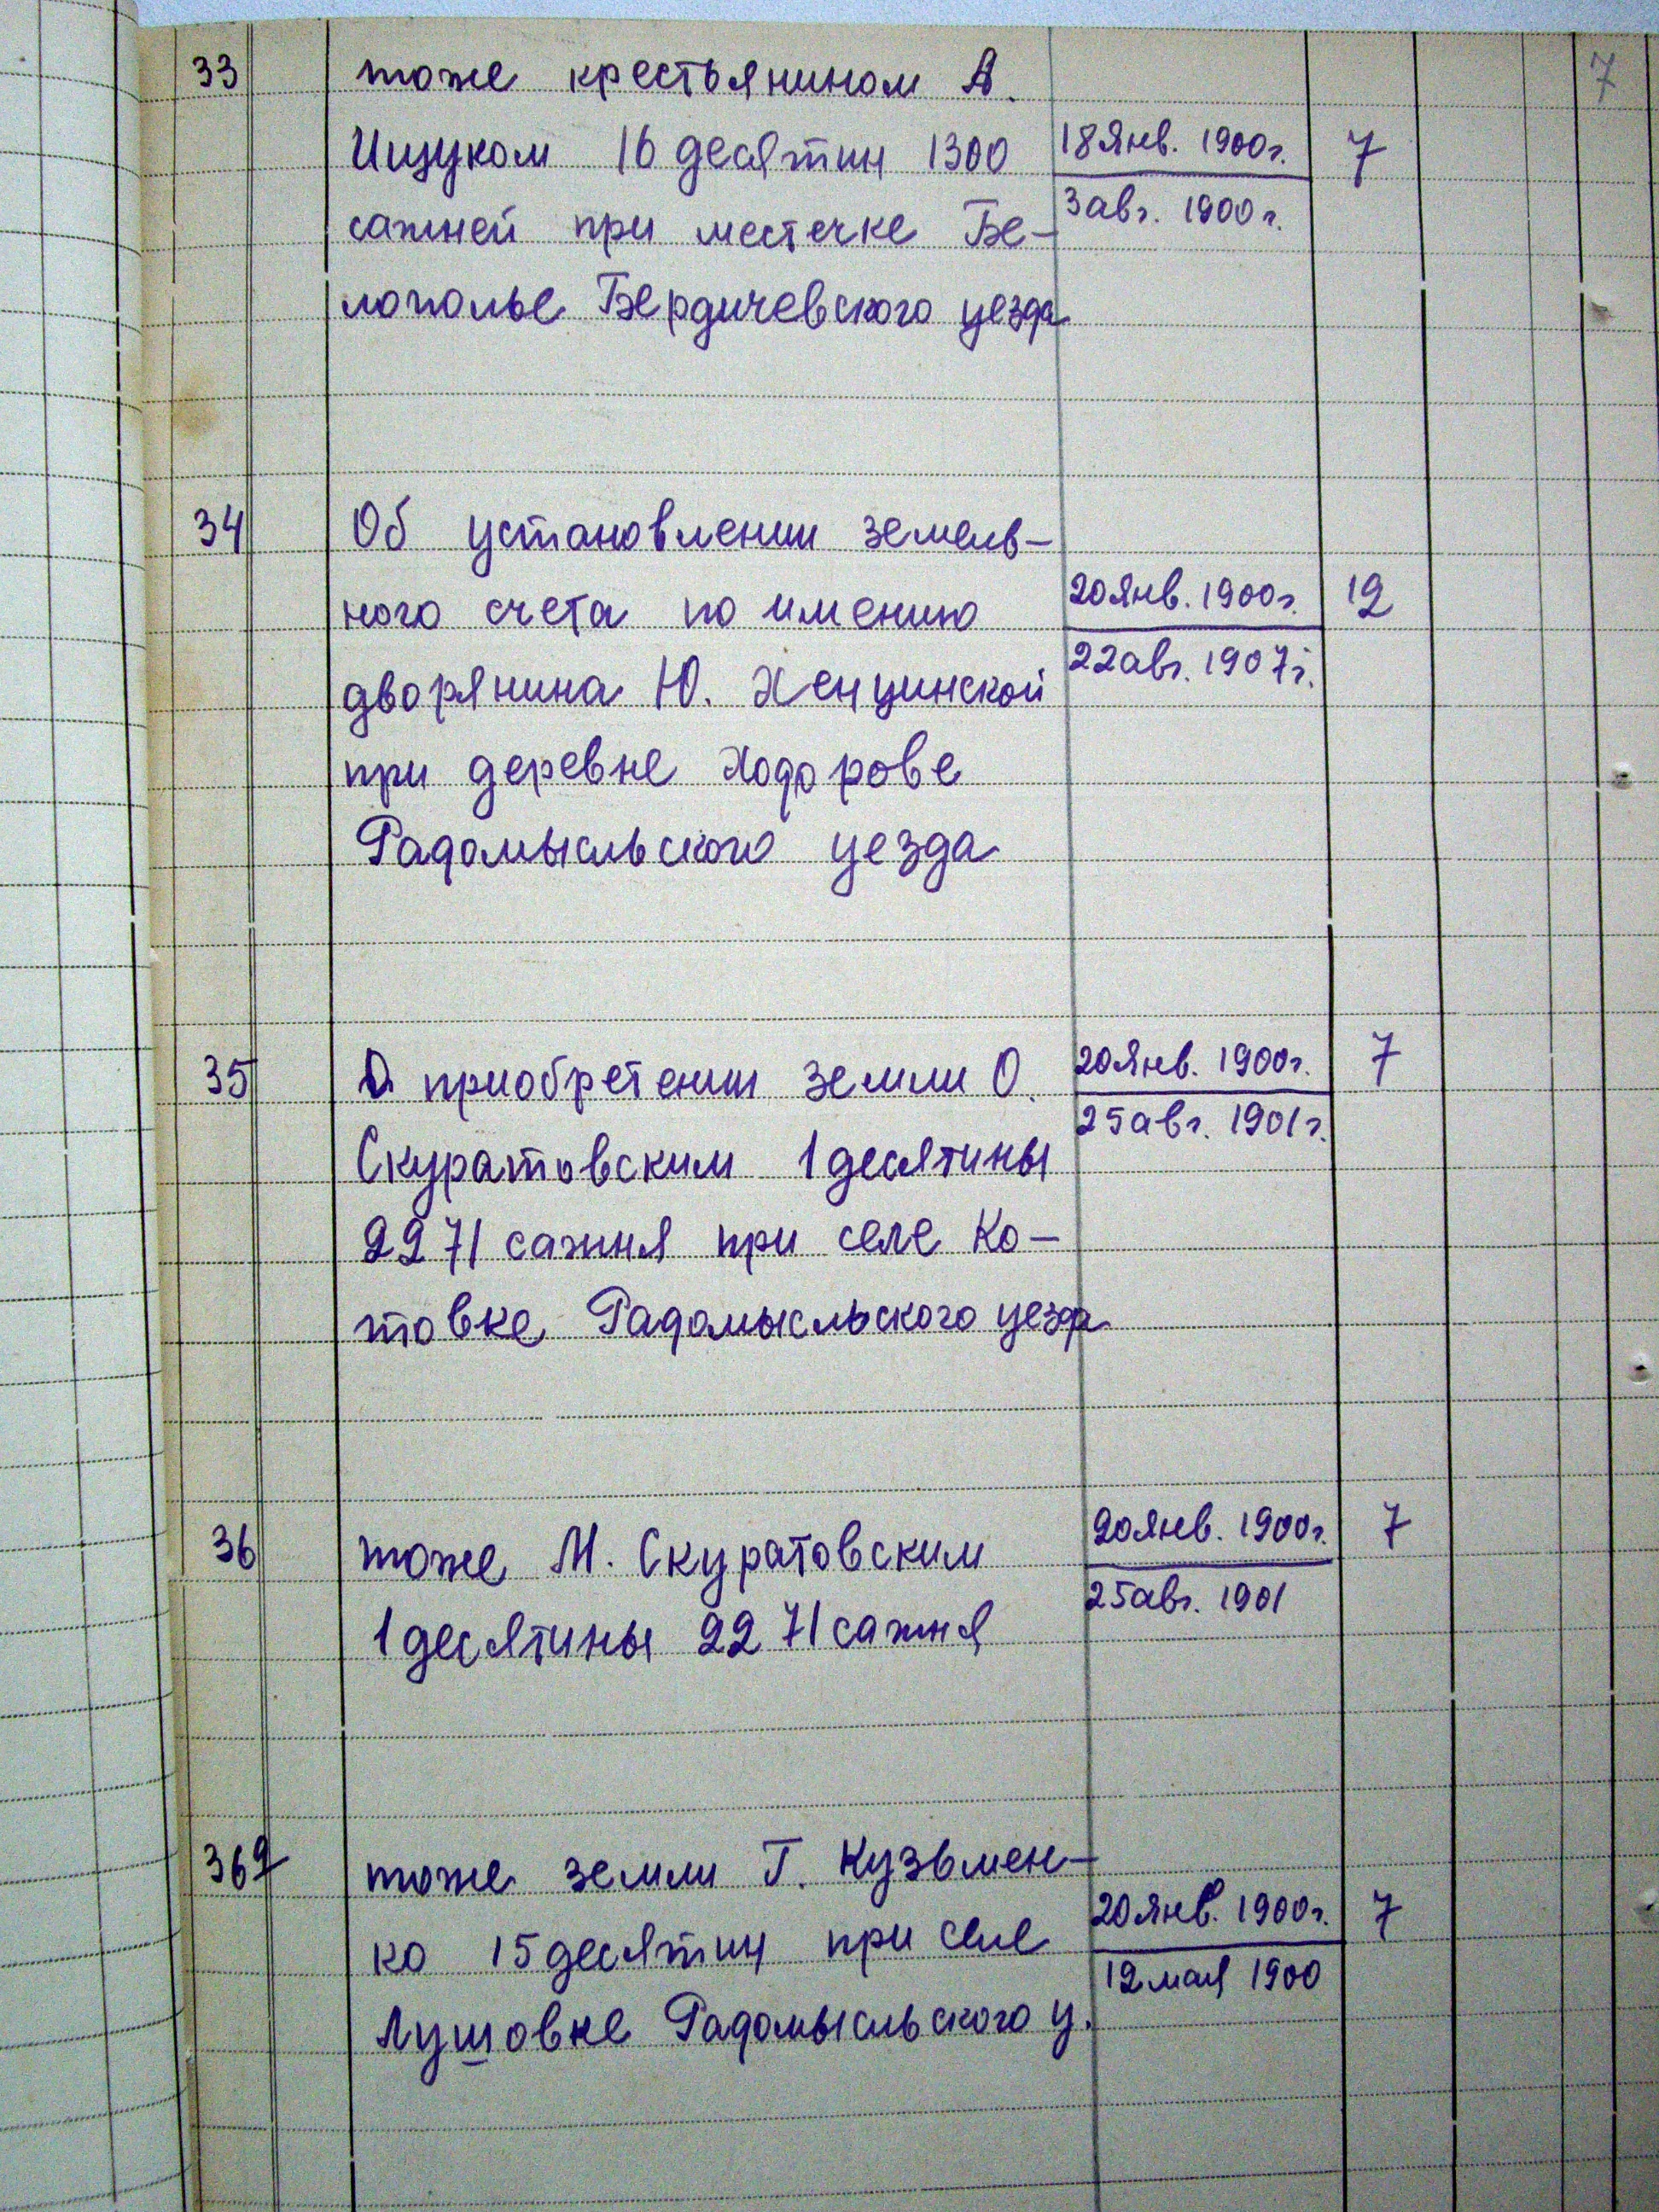 7
33 тоже крестьянином А.
Ищуком 16 десятин 1300 18 янв. 1900г. 7
сажней при местечке Бе- 3 авг. 1900г.
лополье Бердичевского уезда
34 Об установлении земель-
ного счета по имению 20 янв. 1900г. 12
дворянина Ю. Хенцинской 22 авг. 1907г.
при деревне Ходорове
Радомысльского уезда
35 О приобретении земли О. 20 янв. 1900г. 7
Скуратовским 1 десятины 25 авг. 1901г.
2271 сажня при селе Ко-
товке Радомысльского уезда
36 тоже М. Скуратовским 20 янв. 1900г. 7
1 десятины 2271 сажня 25 авг. 1901
36а тоже земли Г. Кузьмен-
ко 15 десятин при селе 20 янв. 1900г. 7
Лушовке Радомысльского у. 12 мая 1900